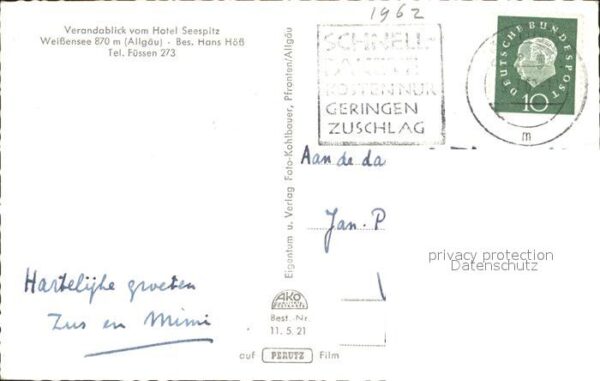 Verandablick vom Hotel Seespitz
Weißensee 870 m (Allgäu) - Bes. Hans Höß
Tel. Füssen 273
Hartelijke groeten
Zus en Mimi
Eigentum u. Verlag Foto-Kohlbauer, Pfronten/Allgäu
AKO
Best.-Nr.
11. 5. 21
auf PERUTZ Film
1962
SCHNELL-
KOSTEN NUR
GERINGEN
ZUSCHLAG
DEUTSCHE BUNDESPOST
10
m
Aan de da
Jan. P
privacy protection
Datenschutz